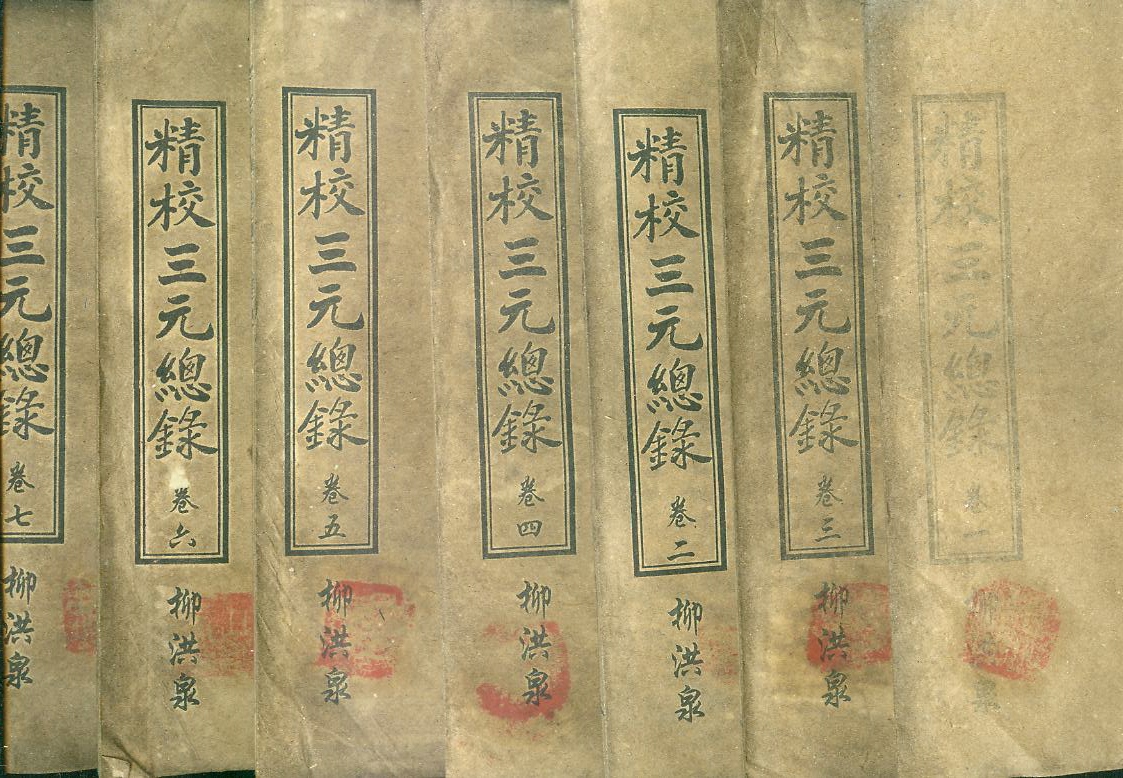 精校三元總錄 卷一
柳洪泉
精校三元總錄 卷三
柳洪泉
精校三元總錄 卷二
柳洪泉
精校三元總錄 卷四
柳洪泉
精校三元總錄 卷五
柳洪泉
精校三元總錄 卷六
柳洪泉
精校三元總錄 卷七
柳洪泉